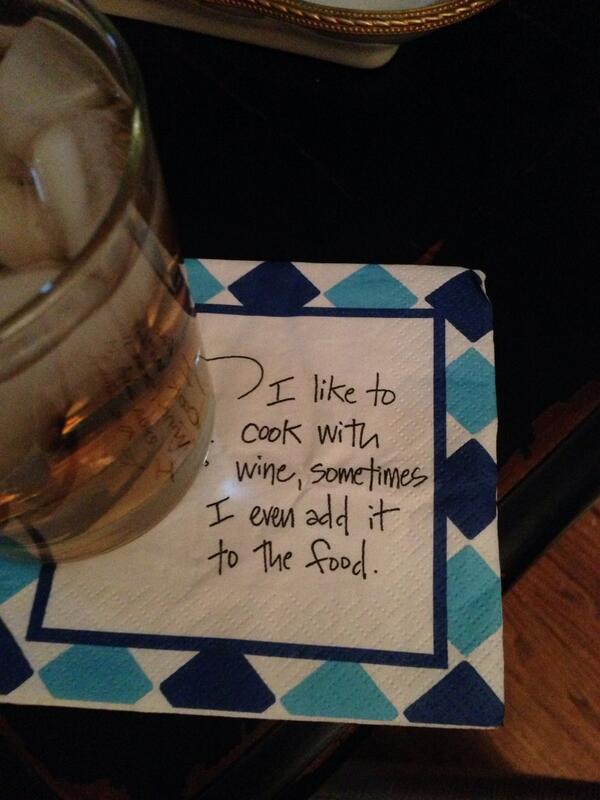 I like to
cook with
wine, sometimes
I even add it
to the food.